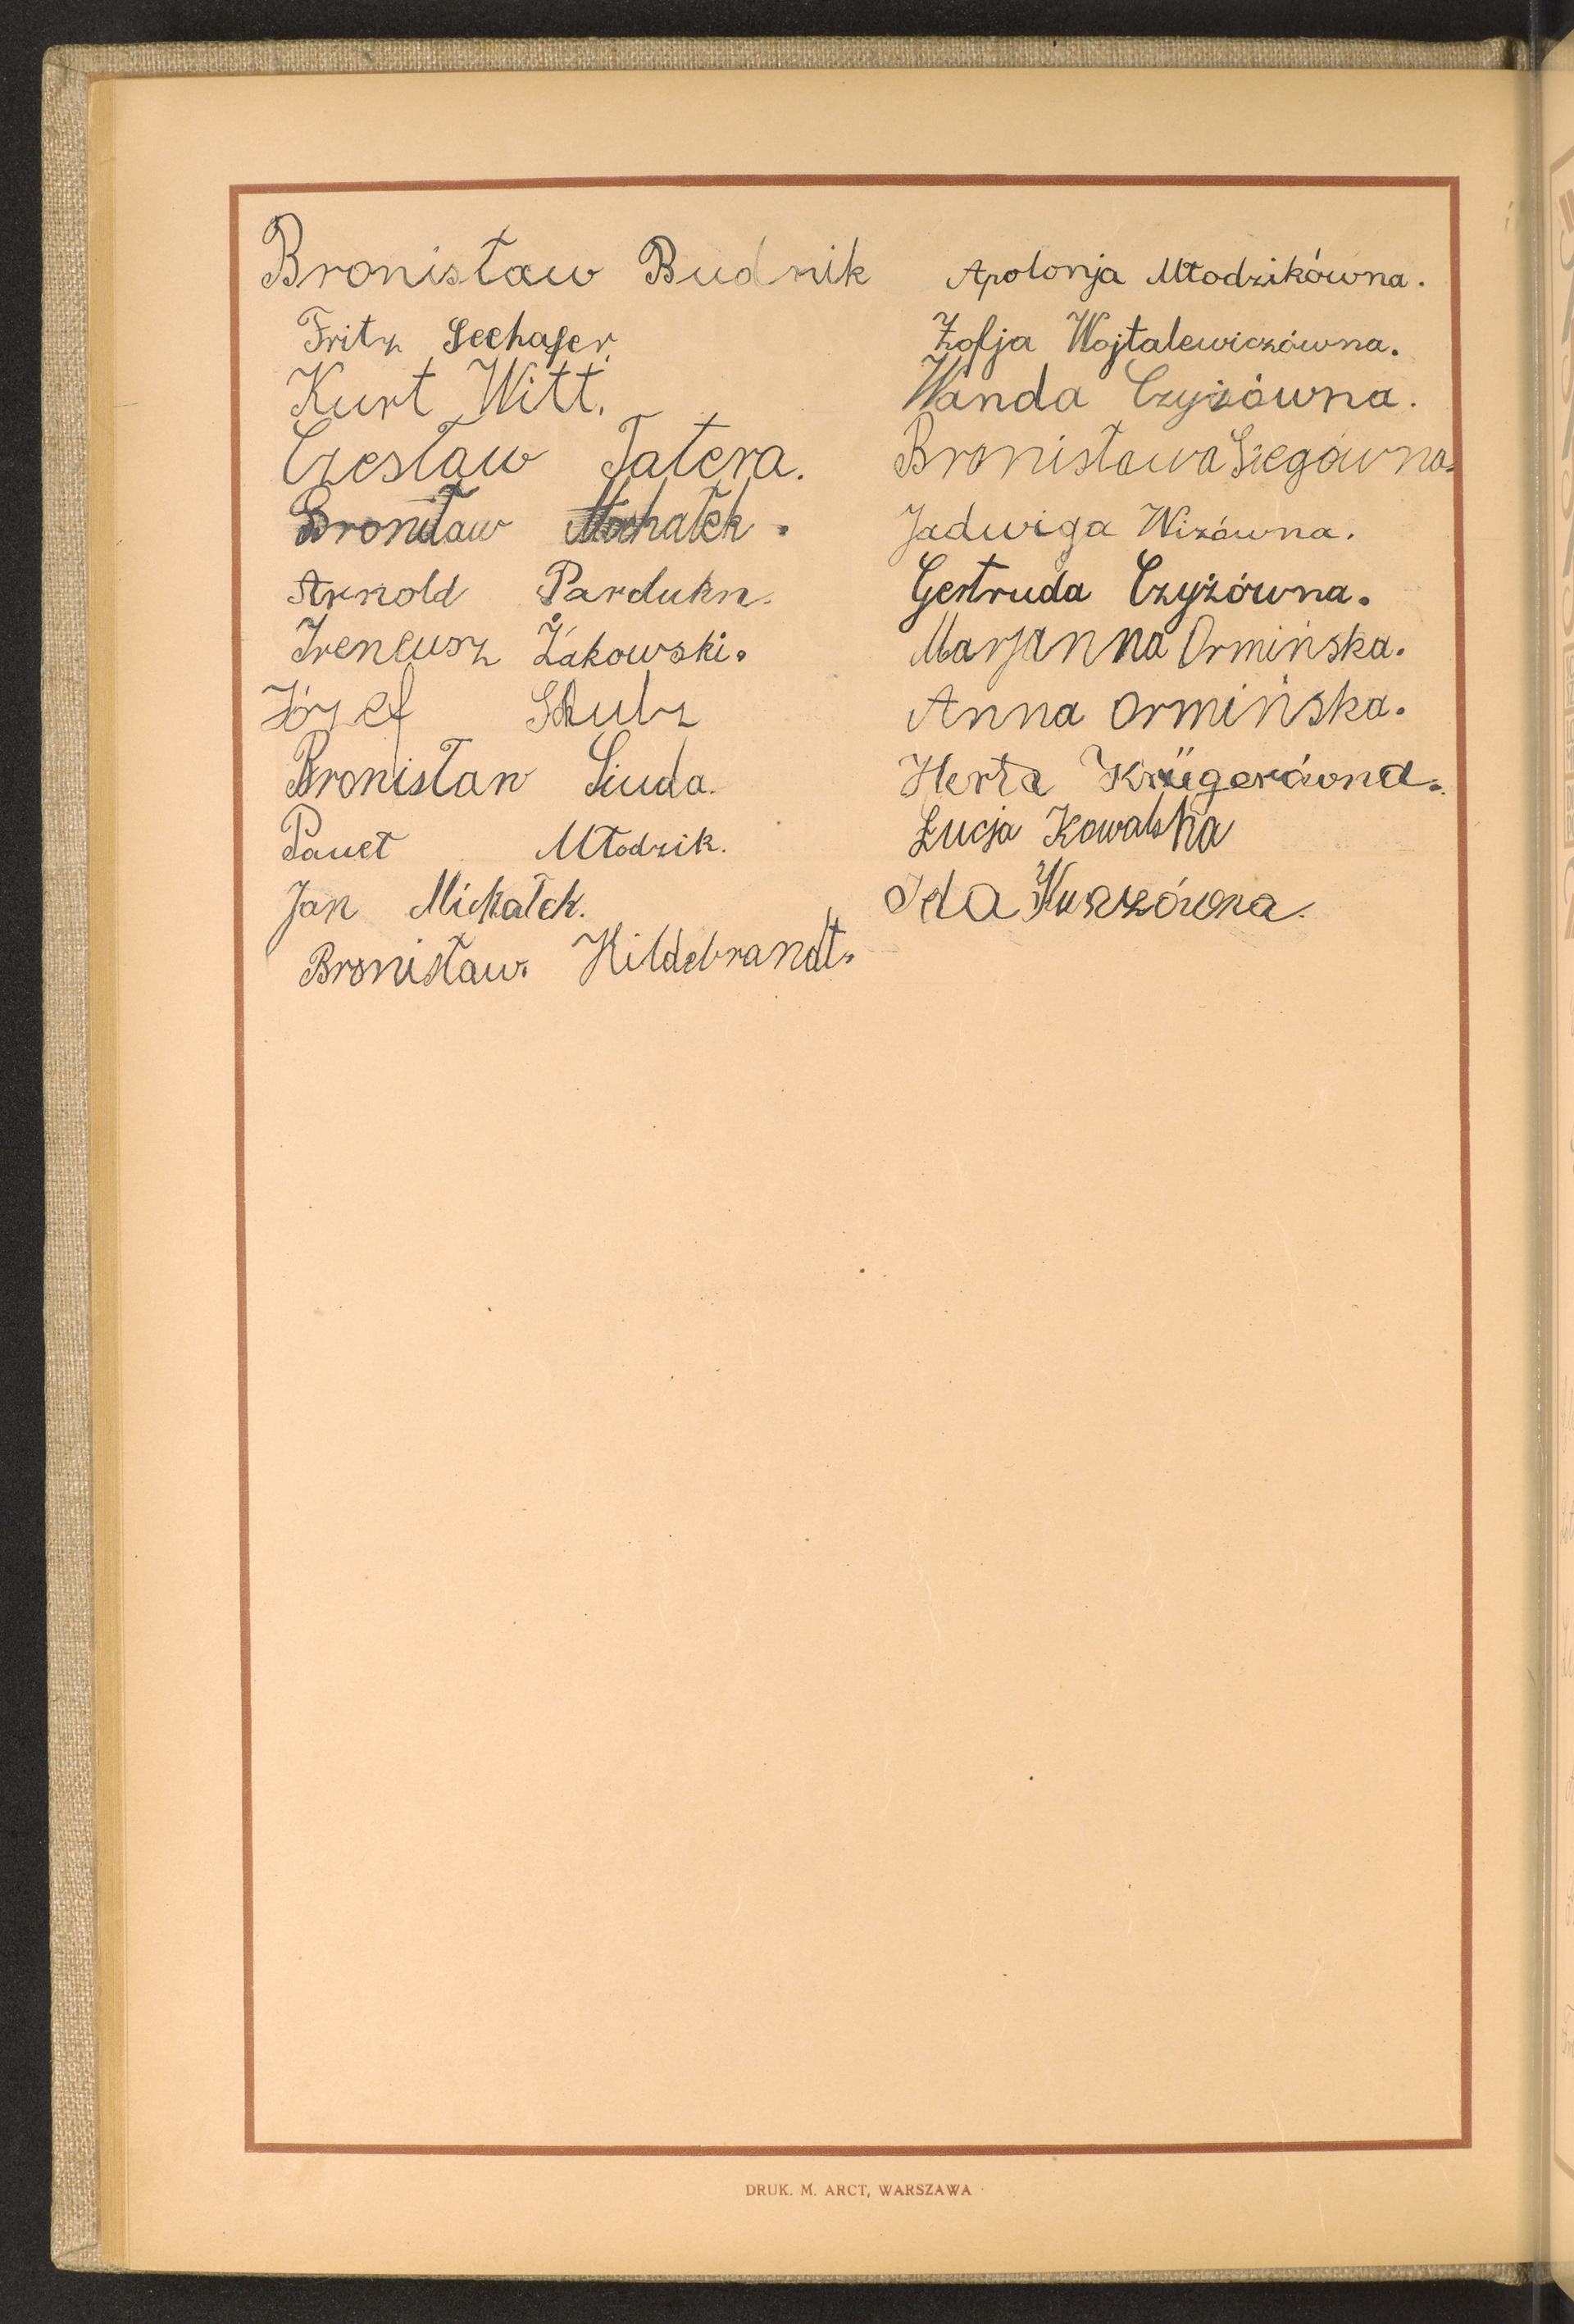 Bronisław Budnik
Fritz Seehafer
Kurt Witt.
Czesław Tatera.
Bronisław Michałek.
Arnold Pardukn.
Ireneusz Żakowski.
Józef Skulz
Bronisław Siuda.
Paweł Młodzik.
Jan Michałek.
Bronisław. Hildebrandt.
Apolonja Młodzikówna.
Zofja Wojtalewiczówna.
Wanda Czyżówna.
Bronisława Szegówna.
Jadwiga Wizówna.
Gertruda Czyżówna.
Marjanna Ormińska.
Anna Ormińska.
Herta Krügerówna.
Łucja Kowalska
Ida
DRUK. M. ARCT, WARSZAWA